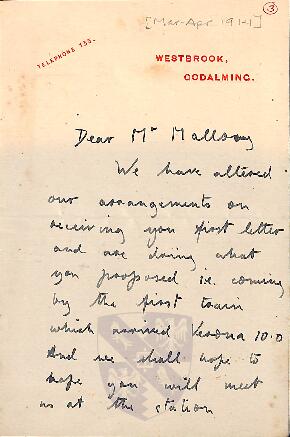 ③
[Mar-Apr 1911]
TELEPHONE 133.
WESTBROOK,
GODALMING.
Dear Mr Mallory
We have altered
our arrangements on
receiving you first letter
and are doing what
you proposed i.e. coming
by the first train
which arrived Verona 10.0
And we shall hope to
hope you will meet
us at the station